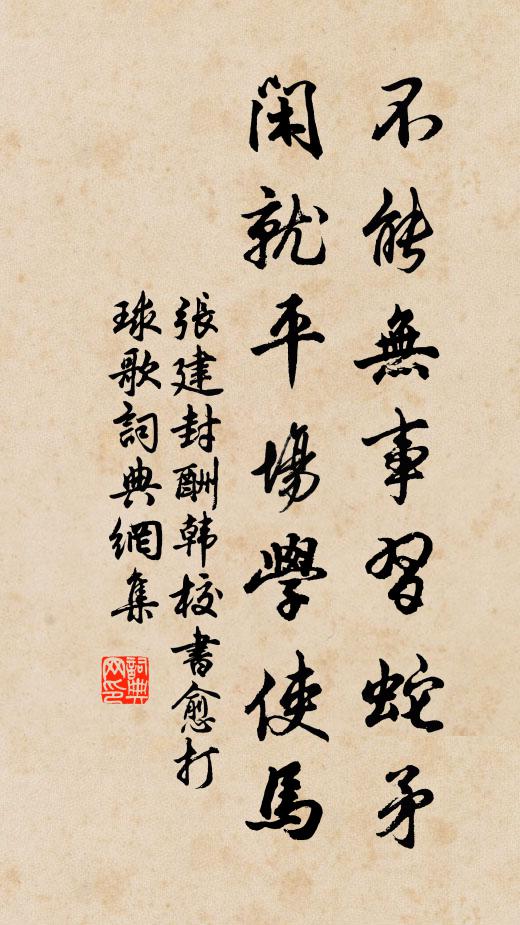 不能無事習蛇矛
閑就平場學使馬
張建封酬韩校書愈打
球歌詞典網集
詞典
网印